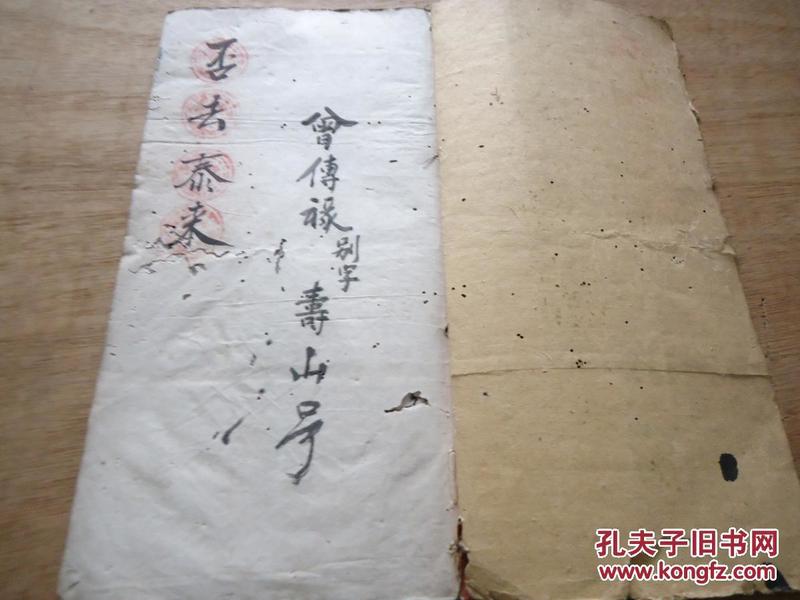 曾傳祿别字壽山号
否去泰来
孔夫子旧书网
www.kongfz.com